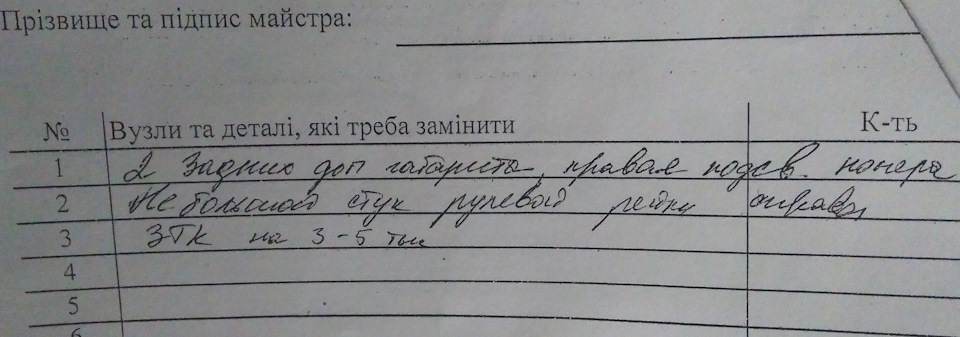 Прізвище та підпис майстра:
№ Вузли та деталі, які треба замінити К-ть
1 2 Задних доп габарита, правая подсв. номера
2 Не большой стук рулевой рейки справа
3 ЗТК на 3-5 тыс
4
5
6